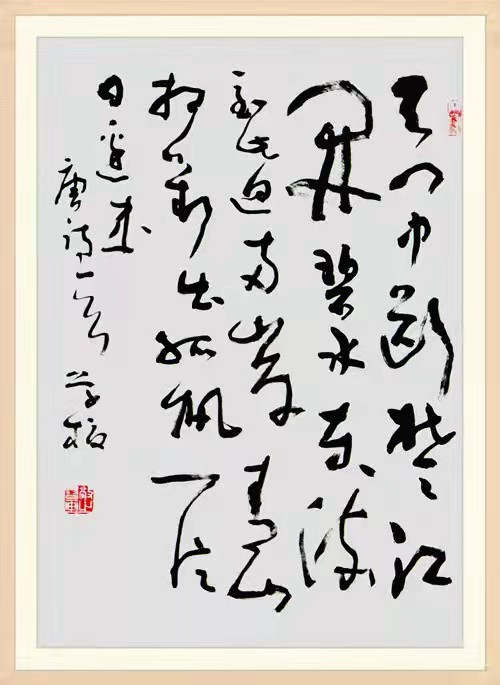 天门中断楚江
开碧水东流
至此迴两岸青山
相对出孤帆一片
日边来
唐诗一首